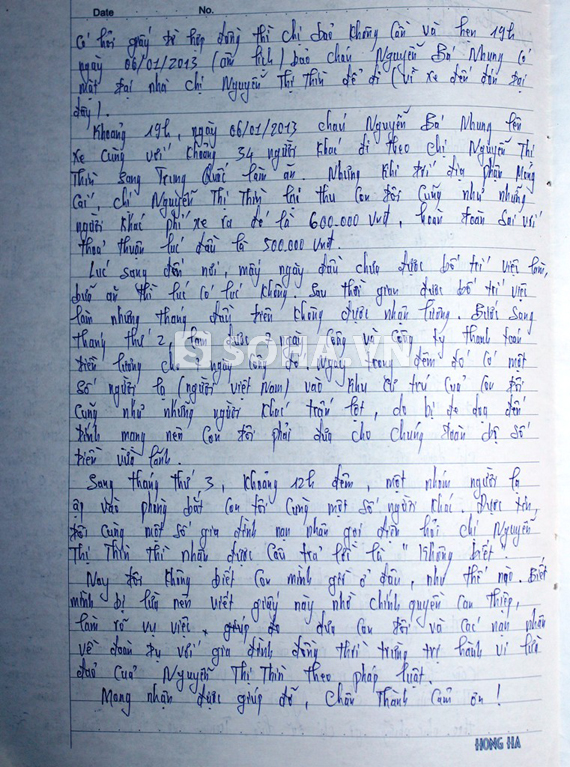 Date No.
Có hỏi giấy tờ hợp đồng thì chị bảo không cần và hẹn 19h
ngày 06/01/2013 (âm lịch) bảo cháu Nguyễn Bá Nhung có
mặt tại nhà chị Nguyễn Thị Thìn để đi (vì xe đến đón tại
đây).
Khoảng 19h, ngày 06/01/2013 cháu Nguyễn Bá Nhung lên
xe cùng với khoảng 34 người khác đi theo chị Nguyễn Thị
Thìn sang Trung Quốc làm ăn. Nhưng khi tới địa phận Móng
Cái, chị Nguyễn Thị Thìn lại thu con tôi cũng như những
người khác phí xe ra đó là 600.000 vnđ, hoàn toàn sai với
thoả thuận lúc đầu là 500.000 vnđ.
Lúc sang đến nơi, mấy ngày đầu chưa được bố trí việc làm,
bữa ăn thì lúc có lúc không. Sau thời gian được bố trí việc
làm nhưng tháng đầu tiên không được nhận lương. Bước sang
tháng thứ 2, làm được ngày công và công ty thanh toán
tiền lương cho ngày công đó. Ngay trong đêm đó có một
số người lạ (người Việt Nam) vào khu cư trú của con tôi
cũng như những người khác trấn lột, do bị đe doạ đến
tính mạng nên con tôi phải đưa cho chúng toàn bộ số
tiền vừa lãnh.
Sang tháng thứ 3, khoảng 12h đêm, một nhóm người lạ
ập vào phòng bắt con tôi cùng một số người khác. Được tin,
tôi cùng một số gia đình nạn nhân gọi điện hỏi chị Nguyễn
Thị Thìn thì nhận được câu trả lời là "Không biết
Nay tôi không biết con mình giờ ở đâu, như thế nào. Biết
mình bị lừa nên viết giấy này nhờ chính quyền can thiệp,
làm rõ vụ việc, giúp đưa con tôi và các nạn nhân
về đoàn tụ với gia đình đồng thời trừng trị hành vi lừa
đảo của Nguyễn Thị Thìn theo pháp luật.
Mong nhận được giúp đỡ, Chân Thành Cảm ơn!
SOHA.VN
HONG HA